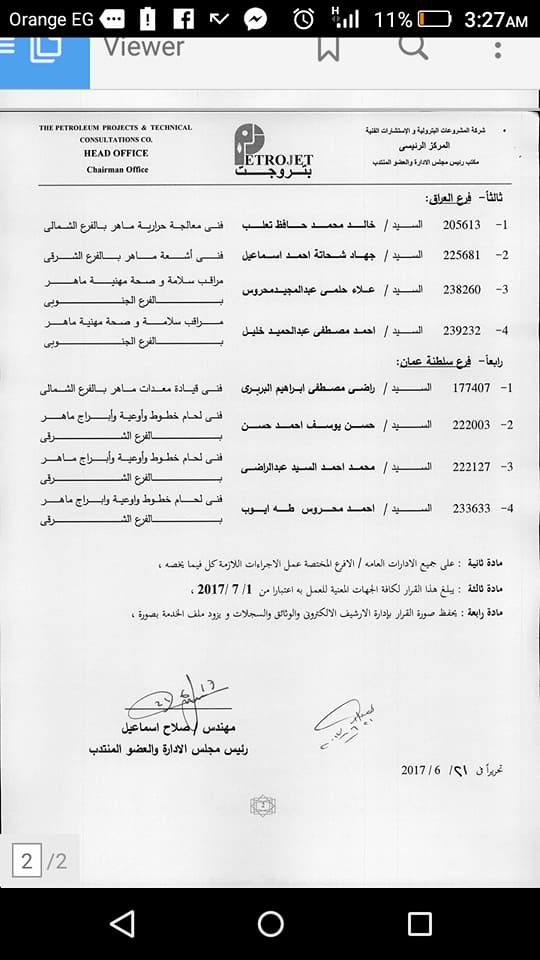 Orange EG 11% 3:27AM
Viewer
THE PETROLEUM PROJECTS & TECHNICAL
CONSULTATIONS CO.
HEAD OFFICE
Chairman Office
PETROJET
بتروجت
شركة المشروعات البترولية و الاستشارات الفنية
المركز الرئيسى
مكتب رئيس مجلس الادارة والعضو المنتدب
ثالثاً- فرع العراق:
1- 205613 السيد / خالد محمد حافظ تعلب فنى معالجة حرارية ماهر بالفرع الشمالى
2- 225681 السيد / جهاد شحاتة احمد اسماعيل فنى أشعة ماهر بالفرع الشرقى
3- 238260 السيد / علاء حلمى عبدالمجيد محروس مراقب سلامة و صحة مهنية ماهر
بالفرع الجنوبى
4- 239232 السيد / احمد مصطفى عبدالحميد خليل مراقب سلامة و صحة مهنية ماهر
بالفرع الجنوبى
رابعاً- فرع سلطنة عمان:
1- 177407 السيد / راضى مصطفى ابراهيم البربرى فنى قيادة معدات ماهر بالفرع الشمالى
2- 222003 السيد / حسن يوسف احمد حسن فنى لحام خطوط وأوعية وأبراج ماهر
بالفرع الشرقى
3- 222127 السيد / محمد احمد السيد عبدالراضى فنى لحام خطوط وأوعية وأبراج ماهر
بالفرع الشرقى
4- 233633 السيد / احمد محروس طه ايوب فنى لحام خطوط واوعية وابراج ماهر
بالفرع الشرقى
مادة ثانية : على جميع الادارات العامه / الافرع المختصة عمل الاجراءات اللازمة كل فيما يخصه ،
مادة ثالثة : يبلغ هذا القرار لكافة الجهات المعنية للعمل به اعتبارا من 1/ 7/ 2017 ،
مادة رابعة : يحفظ صورة القرار بإدارة الارشيف الالكترونى والوثائق والسجلات و يزود ملف الخدمة بصورة ،
مهندس / صلاح اسماعيل
رئيس مجلس الادارة والعضو المنتدب
تحريراً فى ٢١/ 6 / 2017
2
2 /2